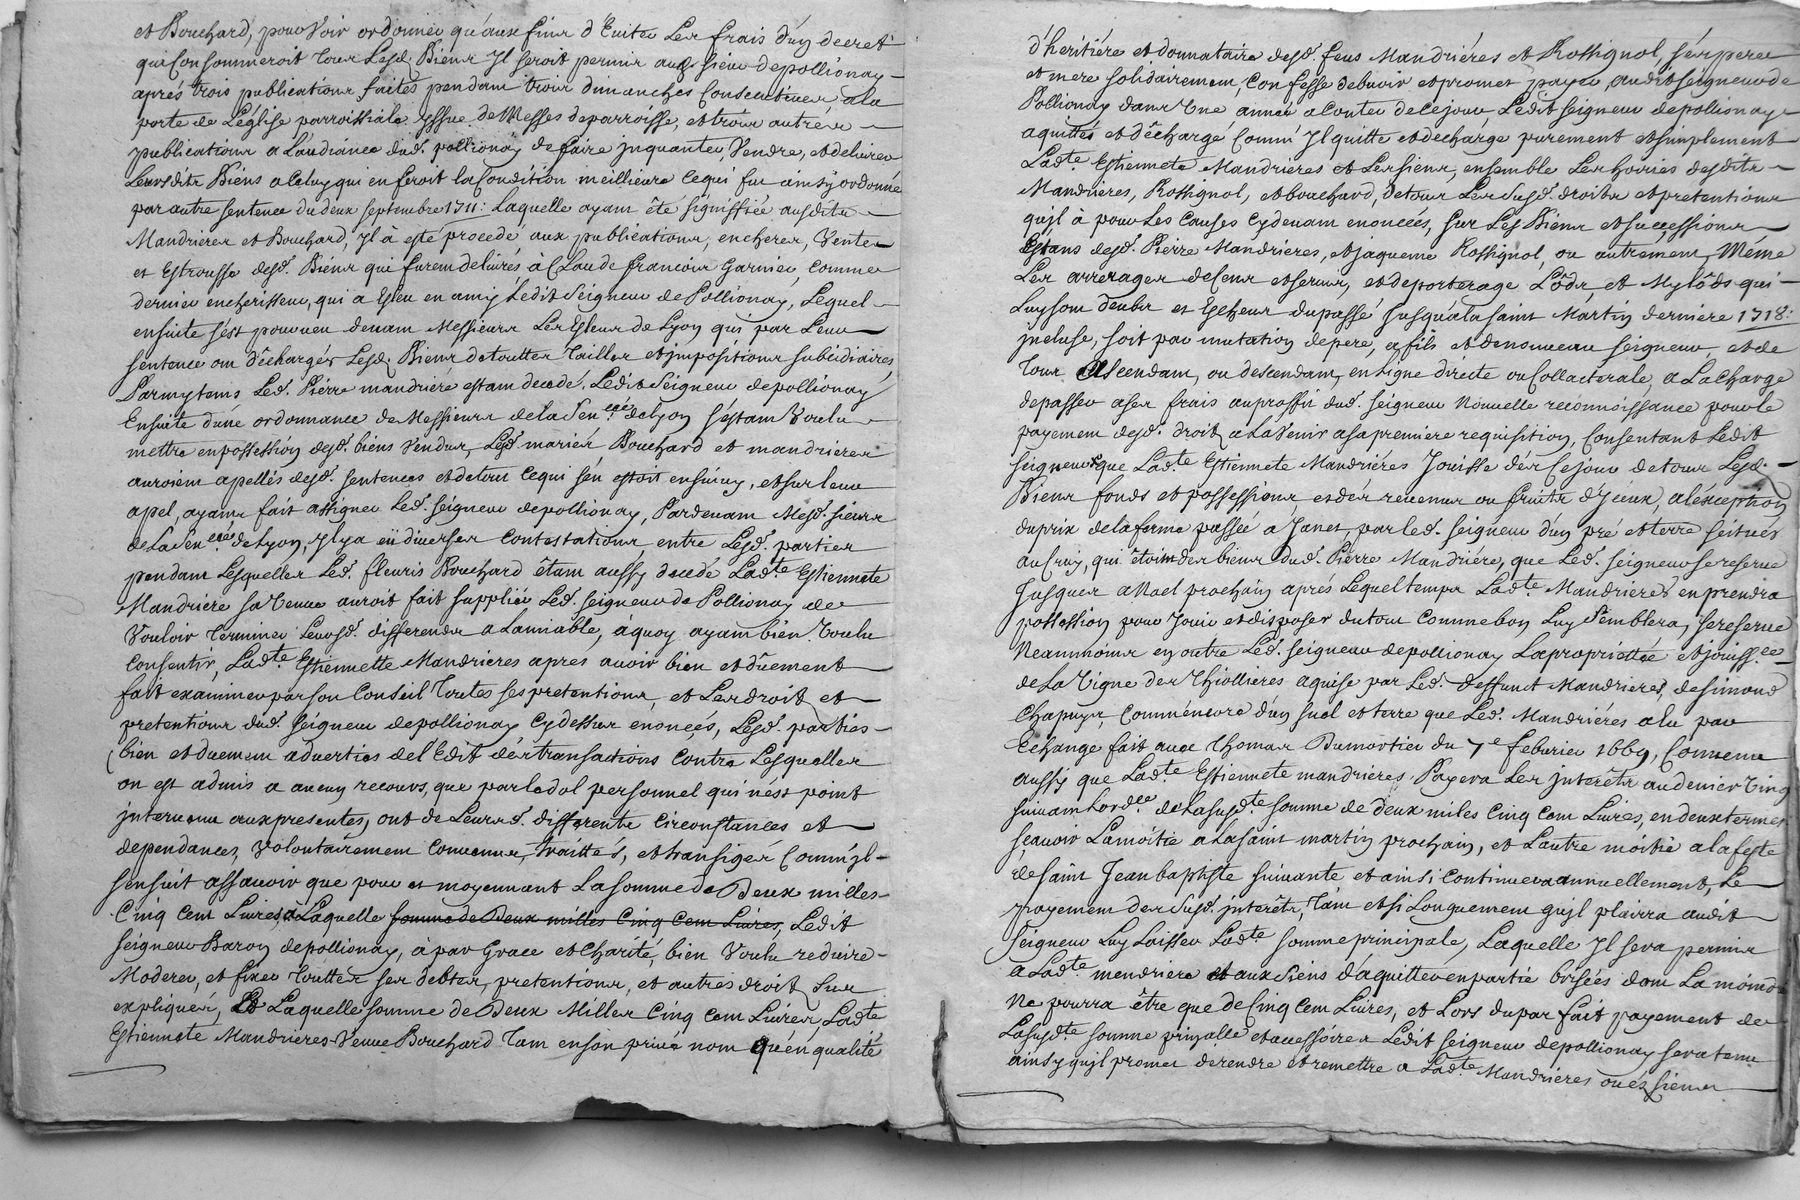 et Bouchard, pour Voir ordonner qu'aux fins d'Euiter Les frais d'un decret
qui Consommeroit tous Lesd. Biens Il seroit permis aud. sieur depollionay
aprés trois publications faites pendant trois dimanches Consecutiues a la
porte de L'églisse parroissiale issue de Messes deparroisse, et trois autres
publications a L'audiance dud. pollionay de faire inquanter, Vendre, et deliurer
Leursdits Biens a Celuy qui en feroit la Condition meillieure cequi fut ainsy ordonné
par autre sentence du deux septembre 1711: Laquelle ayant été signiffiée ausdits
Mandrieres et Bouchard, Il à esté procedé aux publications, encheres, Ventes
et Estrousse desd. Biens qui furent deliurés à Claude francois Garnier, Comme
dernier encherisseur, qui a Esleu en amy Ledit Seigneur de Pollionay, Lequel
ensuite s'est pourueu deuant Messieurs Les Esleus de Lyon qui par Leur
sentence ont dêchargés Lesd. Biens detouttes Tailles et impositions subsidiaires,
Parmytems Led. Piérre mandriere estant decedé, Ledit Seigneur depollionay
Ensuite d'une ordonnance de Messieurs dela Sen.cée de Lyon s'estant Voulu
mettre enpossession desd. biens Vendus, Lesd. mariés Bouchard et mandrieres
auroient apellés desd. sentences et detout cequi s'en estoit ensuiuy, et sur leur
apel, ayant fait assigner Led. seigneur depollionay, Pardeuant Mesd. sieurs
de La Sen.cée de Lyon, Il y a eü diuerses Contestations entre Lesd. parties
pendant Lesquelles Led. fleuris Bouchard êtant aussy decedé Lad.te Estiennete
Mandriere sa Veuue auroit fait supplier Led. seigneur de Pollionay de
Vouloir terminer Leursd. differends a Lamiable, àquoy ayant bien Voulu
Consentir, Lad.te Estiennette Mandrieres apres auoir bien et dûement
fait examiner par son Conseil toutes ses pretentions, et Les droit et
pretentions dud. seigneur depollionay Cydessus enoncés, Lesd. parties
bien et duement aduerties de l'Edit des transactions Contre Lesquelles
on est admis a aucun recours, que par le dol personnel qui n'est point
interuenu aux presentes, ont de Leursd. differents Circonstances et
dependances, Volontairement Conuenus, traittés, et transigés Comm'jl
sensuit assauoir que pour et moyennant La somme de Deux milles
Cinq Cent Liures, à Laquelle somme de Deux milles Cinq Cent Liures, Ledit
seigneur Baron depollionay, à par Grace et Charité, bien Voulu reduire
Moderer, et fixer toutter ses debtes, pretentions, et autres droit Sus
expliqués, Laquelle somme de Deux Milles Cinq Cent Liures Lad.te
Estiennete Mandrieres Veuue Bouchard Tant en son priué nom qu'en qualité
d'heritiére et donnataire desd. feus Mandriéres et Rossignol, ses pere
et mere solidairement, Confesse debuoir et promet payer, audit seigneur de
Pollionay dans Une année a Conter de Cejour, Ledit seigneur depollionay
aquitté et dêchargé Comm' Il quitte et decharge purement et simplement
Lad.te Estiennete Mandrieres et Les siens, ensemble Les hoiries desdits
Mandrieres, Rossignol, et bouchard, detous Les susd. droits et pretentions
qu'jl à pour Les Causes Cydeuant enoncées, sur Les Biens et successions
Estans desd. Piérre Mandrieres, et Jaqueme Rossignol, ou autrement, Méme
Les arrerages de Cens et seruis, et deporterage Lods, et Mylôds qui
Luy sont deubs et Escheus du passé Jusqu'à la saint Martin derniere 1718:
incluse, soit par mutation de pere, a fils et de nouueau seigneur, et de
tous Ascendant, ou descendant, en Ligne directe ou Collacterale, a La Charge
depasser a ses frais au proffit dud. seigneur Nouuelle reconnoissance pour le
payement desd. droit a L'avenir a sa premiere requisition, Consentant Ledit
seigneur que Lad.te Estiennete Mandriéres Jouisse dés Cejour de tous Lesd.
Biens fonds et possessions et dés reuenus ou fruits d'Jceux, a l'exception
du prix de la ferme passée à Janet, par led. seigneur d'un pré et terre seitués
au Cruy, qui étoint des biens dud. Piérre Mandriére, que Led. seigneur se reserue
Jusques a Noel prochain aprés Lequel temps Lad.te Mandrieres en prendra
possession pour Jouir et disposer du tout Comme bon Luy Semblera, se reserue
Neanmoins en outre Led. seigneur depollionay La proprietté et jouiss.ce
de La Vigne des Thiollieres aquise par Led. deffunct Mandrieres, de simond
Chapuys, Comm'encore d'un suel et terre que Led. Mandriéres a lu par
Echange fait auec Thomas Dumortier du 7e feburier 1669, Conuenu
aussy que Lad.te Estiennete mandrieres Payera Les interêts au denier Ving
suiuant Lord.ce de La susd.te somme de deux miles Cinq Cent Liures, en deux termes
sçauoir La moitié a La saint martin prochain, et L'autre moitié a la feste
de saint Jean baptiste suiuante et ainsi Continuer annuellement, Le
payement des susd. interêts, Tant et si Longuement qu'jl plairra audit
seigneur Luy Laisser Lad.te somme principale, Laquelle Il sera permis
a Lad.te mendriere et aux siens d'aquitter en partie brisées dont La moindre
Ne pourra être que de Cinq Cent Liures, et Lors du par fait payement de
La susd.te somme prinpalle et accessoires Ledit seigneur depollionay sera tenu
ainsy qu'jl promet de rendre et remettre a Lad.te Mandriéres ou és siens